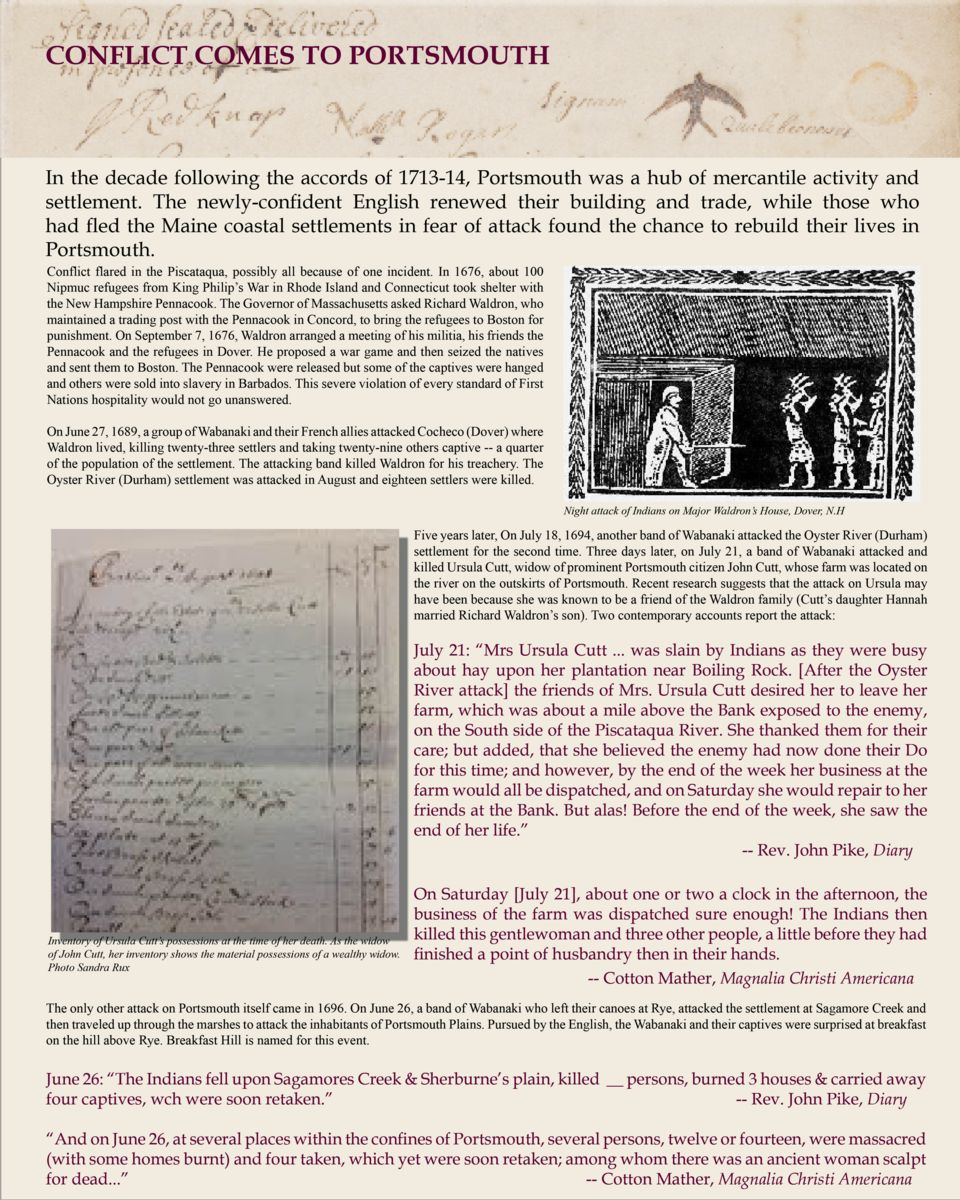 Signed sealed & delivered
CONFLICT COMES TO PORTSMOUTH
in presence of
J Redknap
Signum
In the decade following the accords of 1713-14, Portsmouth was a hub of mercantile activity and
settlement. The newly-confident English renewed their building and trade, while those who
had fled the Maine coastal settlements in fear of attack found the chance to rebuild their lives in
Portsmouth.
Conflict flared in the Piscataqua, possibly all because of one incident. In 1676, about 100
Nipmuc refugees from King Philip's War in Rhode Island and Connecticut took shelter with
the New Hampshire Pennacook. The Governor of Massachusetts asked Richard Waldron, who
maintained a trading post with the Pennacook in Concord, to bring the refugees to Boston for
punishment. On September 7, 1676, Waldron arranged a meeting of his militia, his friends the
Pennacook and the refugees in Dover. He proposed a war game and then seized the natives
and sent them to Boston. The Pennacook were released but some of the captives were hanged
and others were sold into slavery in Barbados. This severe violation of every standard of First
Nations hospitality would not go unanswered.
On June 27, 1689, a group of Wabanaki and their French allies attacked Cocheco (Dover) where
Waldron lived, killing twenty-three settlers and taking twenty-nine others captive -- a quarter
of the population of the settlement. The attacking band killed Waldron for his treachery. The
Oyster River (Durham) settlement was attacked in August and eighteen settlers were killed.
Night attack of Indians on Major Waldron's House, Dover, N.H
Five years later, On July 18, 1694, another band of Wabanaki attacked the Oyster River (Durham)
settlement for the second time. Three days later, on July 21, a band of Wabanaki attacked and
killed Ursula Cutt, widow of prominent Portsmouth citizen John Cutt, whose farm was located on
the river on the outskirts of Portsmouth. Recent research suggests that the attack on Ursula may
have been because she was known to be a friend of the Waldron family (Cutt's daughter Hannah
married Richard Waldron's son). Two contemporary accounts report the attack:
July 21: "Mrs Ursula Cutt ... was slain by Indians as they were busy
about hay upon her plantation near Boiling Rock. [After the Oyster
River attack] the friends of Mrs. Ursula Cutt desired her to leave her
farm, which was about a mile above the Bank exposed to the enemy,
on the South side of the Piscataqua River. She thanked them for their
care; but added, that she believed the enemy had now done their Do
for this time; and however, by the end of the week her business at the
farm would all be dispatched, and on Saturday she would repair to her
friends at the Bank. But alas! Before the end of the week, she saw the
end of her life."
-- Rev. John Pike, Diary
On Saturday [July 21], about one or two a clock in the afternoon, the
business of the farm was dispatched sure enough! The Indians then
killed this gentlewoman and three other people, a little before they had
finished a point of husbandry then in their hands.
-- Cotton Mather, Magnalia Christi Americana
Inventory of Ursula Cutt's possessions at the time of her death. As the widow
of John Cutt, her inventory shows the material possessions of a wealthy widow.
Photo Sandra Rux
The only other attack on Portsmouth itself came in 1696. On June 26, a band of Wabanaki who left their canoes at Rye, attacked the settlement at Sagamore Creek and
then traveled up through the marshes to attack the inhabitants of Portsmouth Plains. Pursued by the English, the Wabanaki and their captives were surprised at breakfast
on the hill above Rye. Breakfast Hill is named for this event.
June 26: "The Indians fell upon Sagamores Creek & Sherburne's plain, killed __ persons, burned 3 houses & carried away
four captives, wch were soon retaken." -- Rev. John Pike, Diary
"And on June 26, at several places within the confines of Portsmouth, several persons, twelve or fourteen, were massacred
(with some homes burnt) and four taken, which yet were soon retaken; among whom there was an ancient woman scalpt
for dead..." -- Cotton Mather, Magnalia Christi Americana